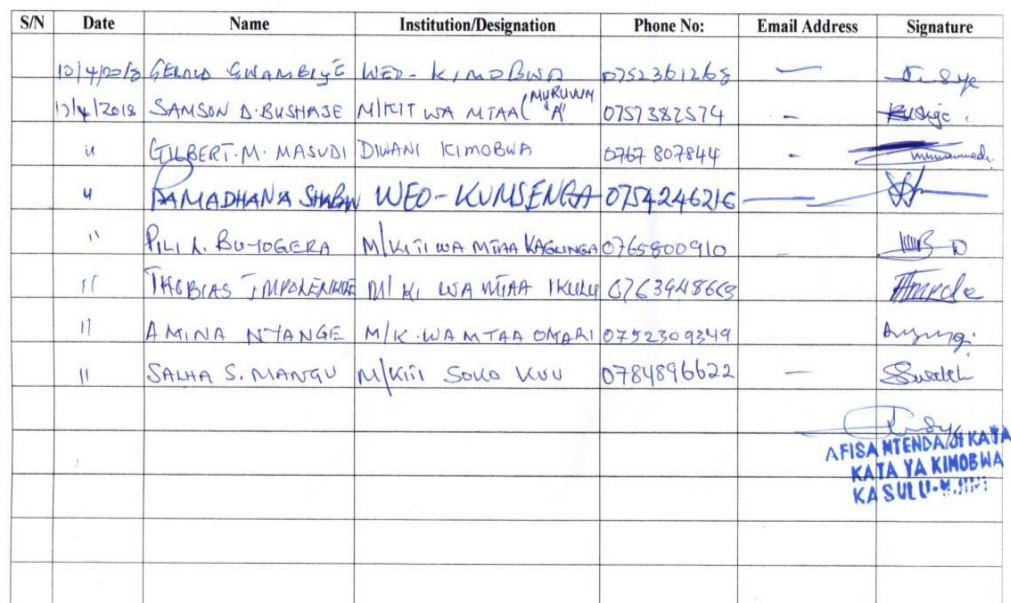 S/N Date Name Institution/Designation Phone No: Email Address Signature
12/4/2018 GERALD GWAMBIYE WEO - KIMOBWA 0752361268 —
12/4/2018 SAMSON D. BUSHAJE M/KITI WA MTAA (MURUWA "A" 0757382574 -
u GILBERT. M. MASUDI DIWANI KIMOBWA 0767 807844 -
u RAMADHANA SHABN WEO - KUMSENGA 0754246216 —
" PILI L. BUYOGERA M/KITI WA MTAA KAGUNGA 0765800910 -
" THOBIAS M/KI WA MTAA IKULU 0763948669
" AMINA NYANGE M/K. WA MTAA OMARI 0752309349
" SALHA S. MANGU M/KITI SOKO KUU 0784896622 —
AFISA MTENDAJI KATA
KATA YA KIMOBWA
KASULU-MJINI